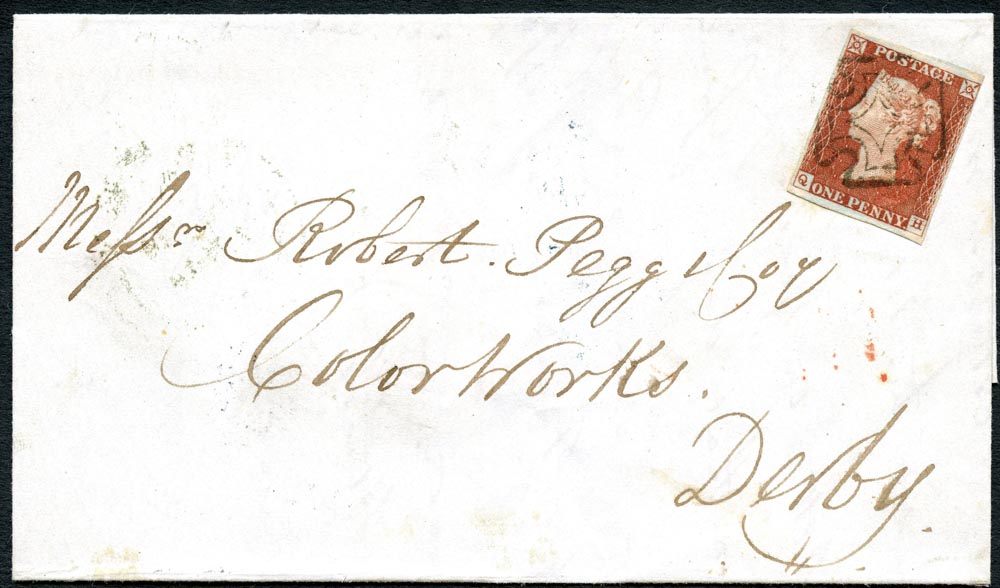 POSTAGE
Q ONE PENNY. H
Messrs Robert. Pegg & Coy
Color Works.
Derby.